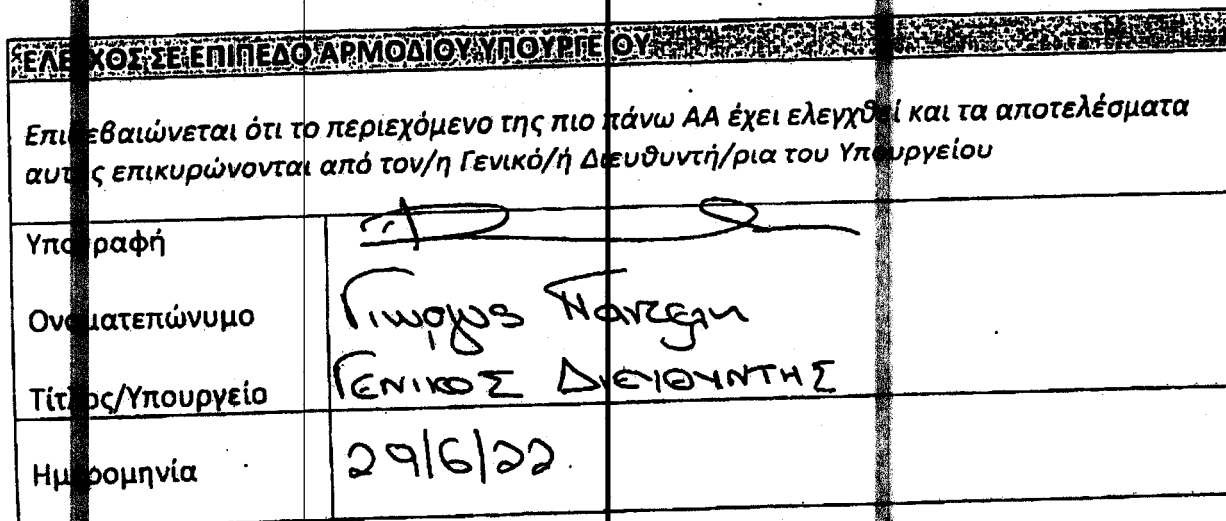 ΕΛΕΓΧΟΣ ΣΕ ΕΠΙΠΕΔΟ ΑΡΜΟΔΙΟΥ ΥΠΟΥΡΓΕΙΟΥ
Επιβεβαιώνεται ότι το περιεχόμενο της πιο πάνω ΑΑ έχει ελεγχθεί και τα αποτελέσματα
αυτής επικυρώνονται από τον/η Γενικό/ή Διευθυντή/ρια του Υπουργείου
Υπογραφή
Ονοματεπώνυμο Γιώργος Παντελή
Τίτλος/Υπουργείο ΓΕΝΙΚΟΣ ΔΙΕΥΘΥΝΤΗΣ
Ημερομηνία 29/6/22